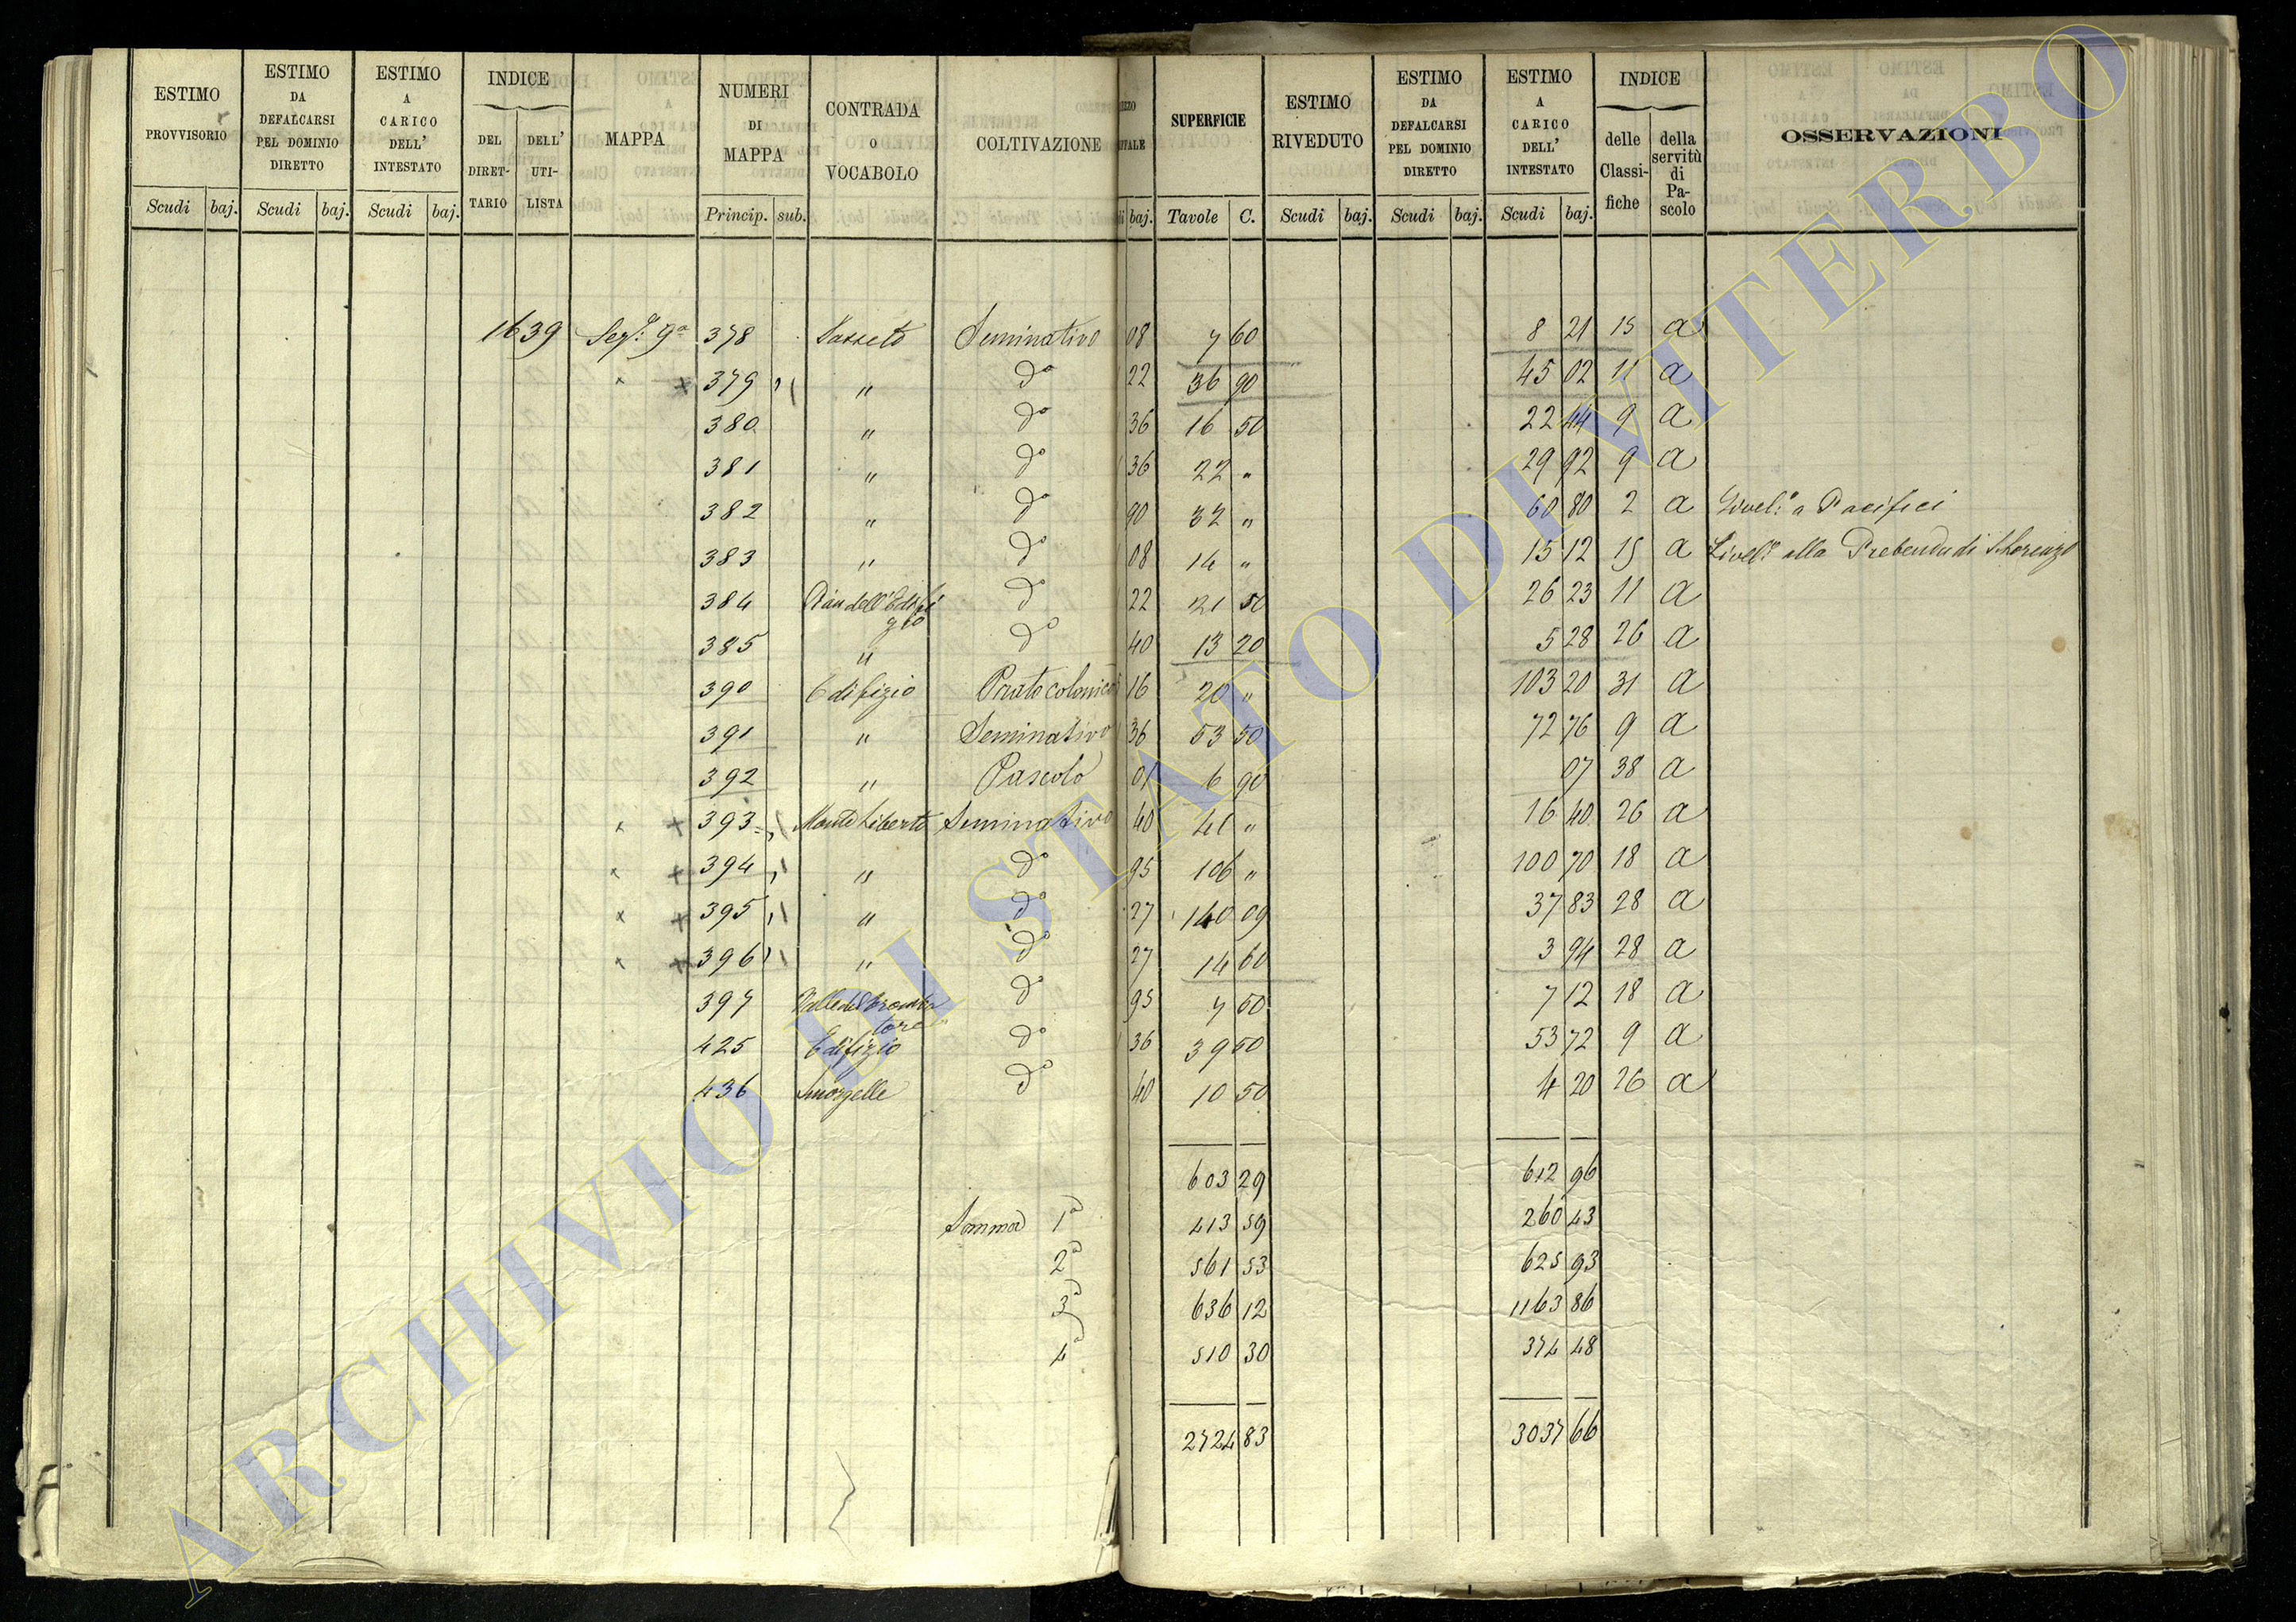 ESTIMO PROVVISORIO | ESTIMO DA DEFALCARSI PEL DOMINIO DIRETTO | ESTIMO A CARICO DELL' INTESTATO | INDICE | MAPPA | NUMERI DI MAPPA | CONTRADA O VOCABOLO | COLTIVAZIONE | SUPERFICIE | ESTIMO RIVEDUTO | ESTIMO DA DEFALCARSI PEL DOMINIO DIRETTO | ESTIMO A CARICO DELL' INTESTATO | INDICE | OSSERVAZIONI
DEL DIRET- TARIO | DELL' UTI- LISTA | delle Classi- fiche | della servitù di Pa- scolo
Scudi | baj. | Scudi | baj. | Scudi | baj. | Princip. | sub. | baj. | Tavole | C. | Scudi | baj. | Scudi | baj. | Scudi | baj.
1639 Sez.e 9a 378 Sasseto Seminativo 08 7 60 8 21 15 a
379 " do 22 36 90 45 02 11 a
380 " do 36 16 50 22 44 9 a
381 " do 36 22 " 29 92 9 a
382 " do 90 32 " 60 80 2 a Livel.o a Pacifici
383 " do 08 14 " 15 12 15 a Livel.o alla Prebenda di S. Lorenzo
384 Pian dell'Edifi do 22 21 50 26 23 11 a
zio
385 " do 40 13 20 5 28 26 a
390 Edifizio Prato colonico 16 20 " 103 20 31 a
391 " Seminativo 36 53 50 72 76 9 a
392 " Pascolo 01 6 90 07 38 a
393 Monte Liberto Seminativo 40 41 " 16 40 26 a
394 " do 95 106 " 100 70 18 a
395 " do 27 140 09 37 83 28 a
396 " do 27 14 60 3 94 28 a
397 Valle del do 95 7 50 7 12 18 a
425 Edifizio do 36 39 50 53 72 9 a
436 do 40 10 50 4 20 26 a
603 29 612 96
Somma 1a 413 59 260 43
2a 561 53 625 93
3a 636 12 1163 86
4a 510 30 374 48
2724 83 3037 66
ARCHIVIO DI STATO DI VITERBO